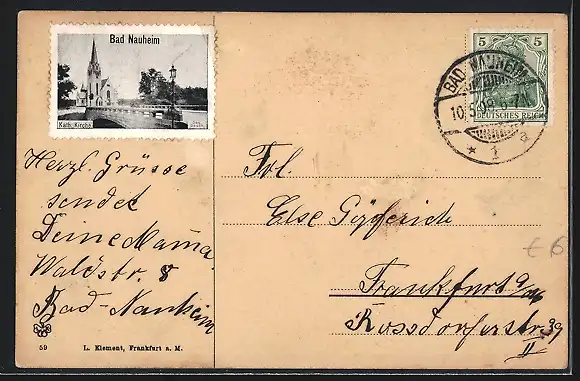 Bad Nauheim
Kath. Kirche
5 5
DEUTSCHES REICH
BAD NAUHEIM
10.5.09. 6-7N
* 1 a
Herzl. Grüsse
sendet
Deine Mama
Waldstr. 8
Bad-Nauheim
Frl.
Else
Frankfurt a/M
Rossdorferstr. 39
II
€ 6
59 L. Klement, Frankfurt a. M.